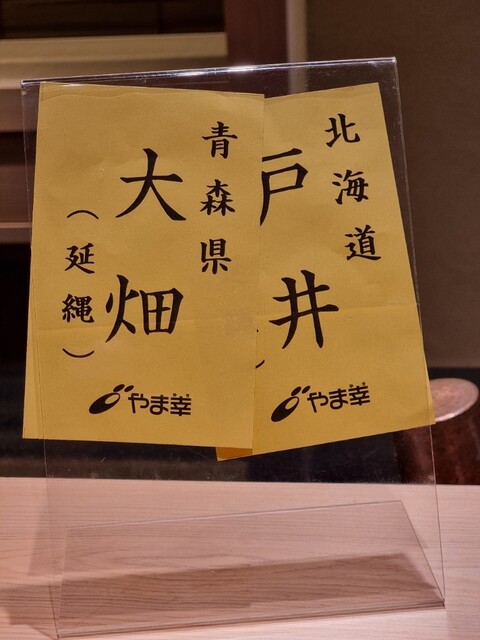 青森県
大畑
（延縄）
やま幸
北海道
戸井
）
やま幸